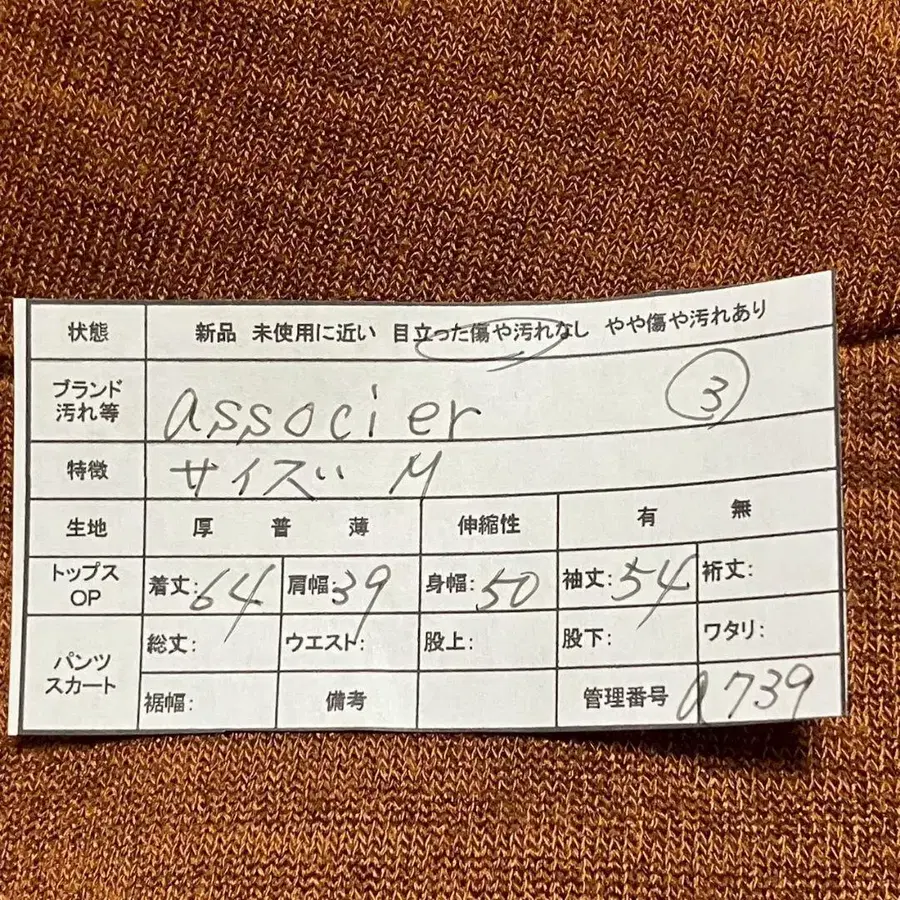 状態 新品 未使用に近い 目立った傷や汚れなし やや傷や汚れあり
ブランド
汚れ等 associer ③
特徴 サイズ M
生地 厚 普 薄 伸縮性 有 無
トップス
OP 着丈:64 肩幅:39 身幅:50 袖丈:54 裄丈:
パンツ
スカート 総丈: ウエスト: 股上: 股下: ワタリ:
裾幅: 備考 管理番号 a739